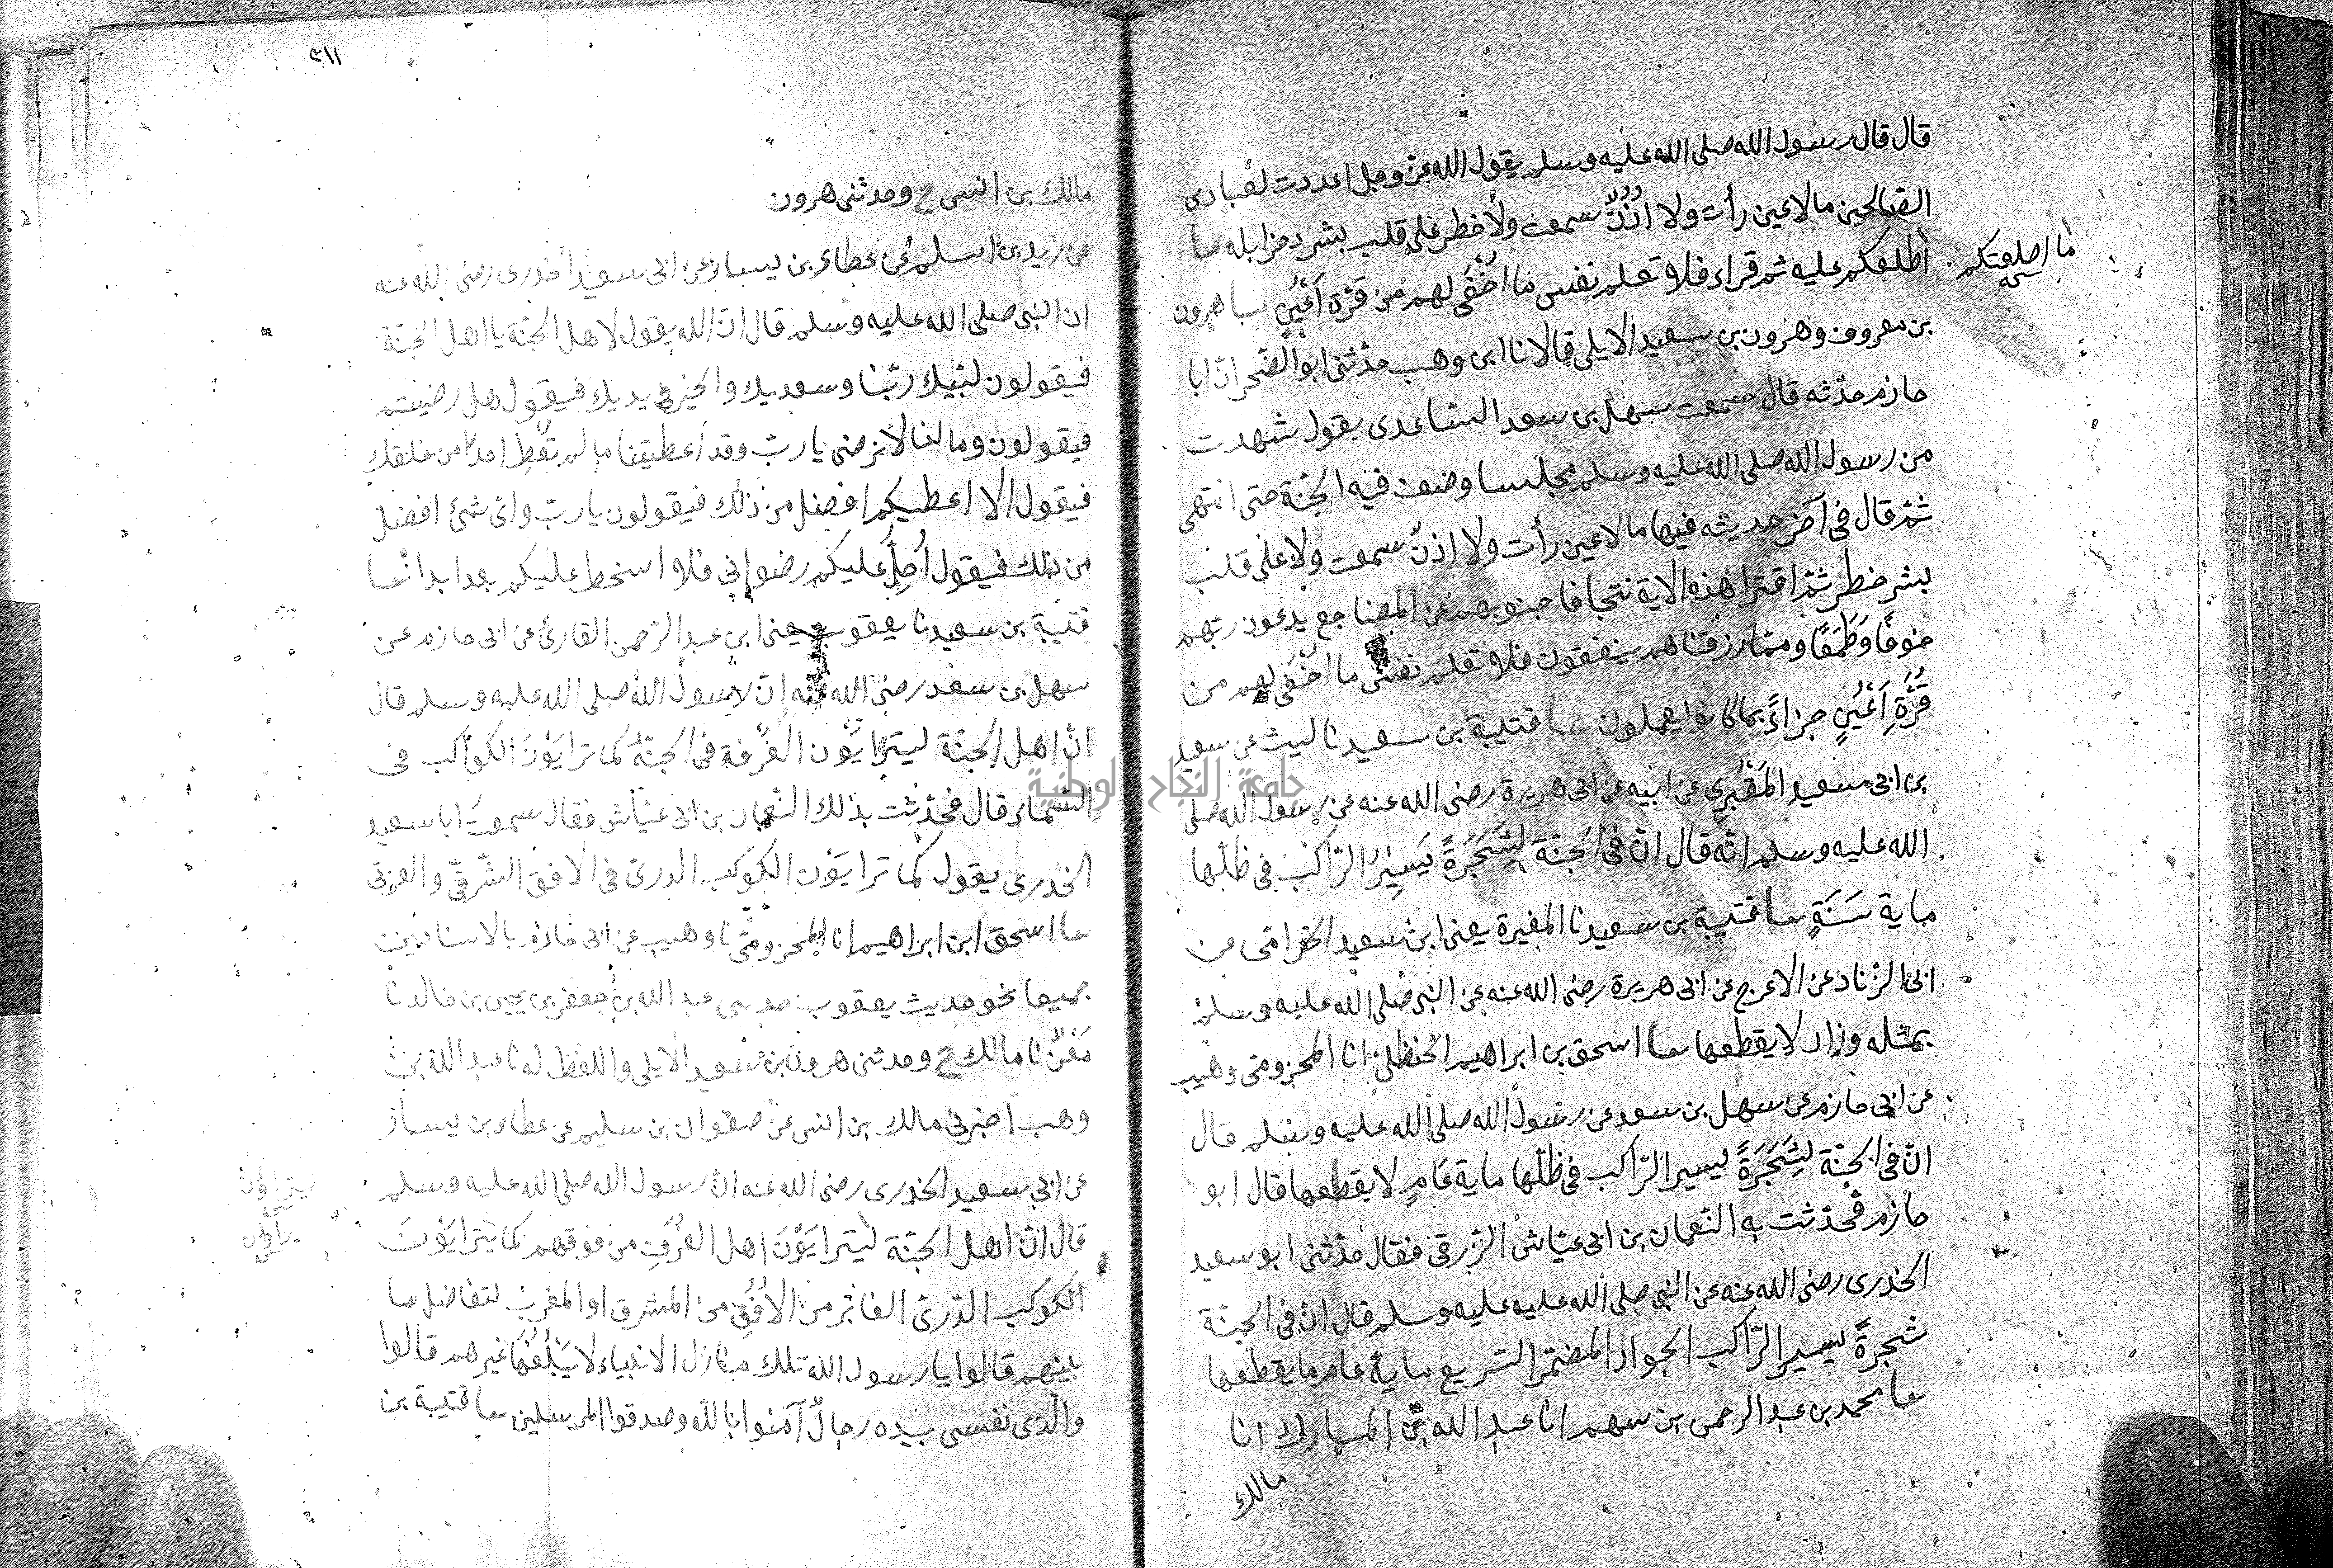 قال قال رسول الله صلى الله عليه وسلم يقول الله عز وجل اعددت لعبادى
الصالحين ما لا عين رأت ولا اذنٌ سمعت ولا خطر على قلب بشر ذخرا بله ما
أطلعكم عليه ثم قراء فلا تعلم نفس ما أُخْفَى لهم من قرّة أَعْيُنٍ نا هرون
ما اطلعتكم
بن معروف وهرون بن سعيد الايلى قالا نا ابن وهب حدّثنى ابو الصّخر انّ ابا
حازم حدّثه قال سمعت سهل بن سعد الساعدى يقول شهدت
من رسول الله صلى الله عليه وسلم مجلسا وصف فيه الجنّة حتى انتهى
ثمّ قال فى آخر حديثه فيها ما لا عين رأت ولا اذنٌ سمعت ولا على قلب
بشر خطر ثمّ اقترا هذه الاية تتجافا جنوبهم عن المضاجع يدعون ربّهم
خوفًا وَطَمَعًا وممّا رزقناهم ينفقون فلا تعلم نفسٌ ما اخْفَى لهم من
قُرَّةِ أَعْيُنٍ جزاءً بما كانوا يعملون نا قتيبة بن سعيد نا ليث عن سعيد
بن ابى سعيد المَقْبُرِى عن ابيه عن ابى هريرة رضى الله عنه عن رسول الله صلى
الله عليه وسلم انّه قال انّ فى الجنّة لشَجَرَةً يَسِيْرُ الرّاكب فى ظلّها
ماية سَنَةٍ نا قتيبة بن سعيد نا المغيرة يعنى ابن سعيد الخزامّى عن
ابى الزّناد عن الاعرج عن ابى هريرة رضى الله عنه عن النبى صلى الله عليه وسلم
بمثله وزاد لا يقطعها نا اسحق بن ابراهيم الحنظلىّ انا المخزومّى وهيب
عن ابى حازم عن سهل بن سعد عن رسول الله صلى الله عليه وسلم قال
انّ فى الجنّة لشَجَرَةً يسير الرّاكب فى ظلّها ماية عَامٍ لا يقطعها قال ابو
حازم فحدّثت به النّعمان بن ابى عيّاش الزّرقى فقال حدّثنى ابو سعيد
الخدرى رضى الله عنه عن النبى صلى الله عليه عليه وسلم قال انّ فى الجنّة
شجرةً يسير الرّاكب الجواد المضمّر السّريع ماية عام ما يقطعها
نا محمد بن عبد الرحمن بن سهم انا عبد الله بن المبارك انا
مالك
٢١١
مالك بن انس ح وحدثنى هرون
عن زيد بن اسلم عن عطاء بن يسار عن ابى سعيد الخدرى رضى الله عنه
ان النبى صلى الله عليه وسلم قال انّ الله يقول لاهل الجنّة يا اهل الجنّة
فيقولون لبّيك ربّنا وسعديك والخير فى يديك فيقول هل رضيتم
فيقولون وما لنا لا نرضى يا ربّ وقد أعطيتنا ما لم تُعْطِ احدًا من خلقك
فيقول الا اعطيكم افضل من ذلك فيقولون يا ربّ واىّ شئ افضل
من ذلك فيقول أُحِلُّ عليكم رضوانى فلا اسخط عليكم بعده ابدا نا
قتيبة بن سعيد نا يعقوب يعنى ابن عبد الرّحمن القارئ عن ابى حازم عن
سهل بن سعد رضى الله عنه انّ رسول الله صلى الله عليه وسلم قال
انّ اهل الجنّة ليترايَوْن الغُرْفة فى الجنّة كما ترايَوْنَ الكواكب فى
السّماء قال فحدّثت بذلك النّعمان بن ابى عيّاش فقال سمعت ابا سعيد
الخدرى يقول كما ترايَوْن الكوكب الدرىّ فى الافق الشّرقىّ والغربّى
نا اسحق ابن ابراهيم انا المخزومّى نا وهيب عن ابى حازم بالاسنادين
جميعا نحو حديث يعقوب حدثنى عبد الله بن جعفر بن يحيى بن خالد نا
مَعْنٌ نا مالك ح وحدثنى هرون بن سعيد الايلى واللفظ له نا عبد الله بن
وهب اخبرنى مالك بن انس عن صفوان بن سليم عن عطاء بن يسار
عن ابى سعيد الخدرى رضى الله عنه انّ رسول الله صلى الله عليه وسلم
يتراؤن
قال انّ اهل الجنّة ليترايَوْنَ اهل الغُرَفِ من فوقهم كما يترايَوْنَ
الكوكب الدّرىّ الغابر من الأُفُقِ من المشرق او المغرب لتفاضل ما
بينهم قالوا يا رسول الله تلك منازل الانبياء لا يَبْلُغُهَا غيرهم قالوا
والّذى نفسى بيده رجالٌ آمنوا بالله وصدقوا المرسلين نا قتيبة بن
جامعة النجاح الوطنية